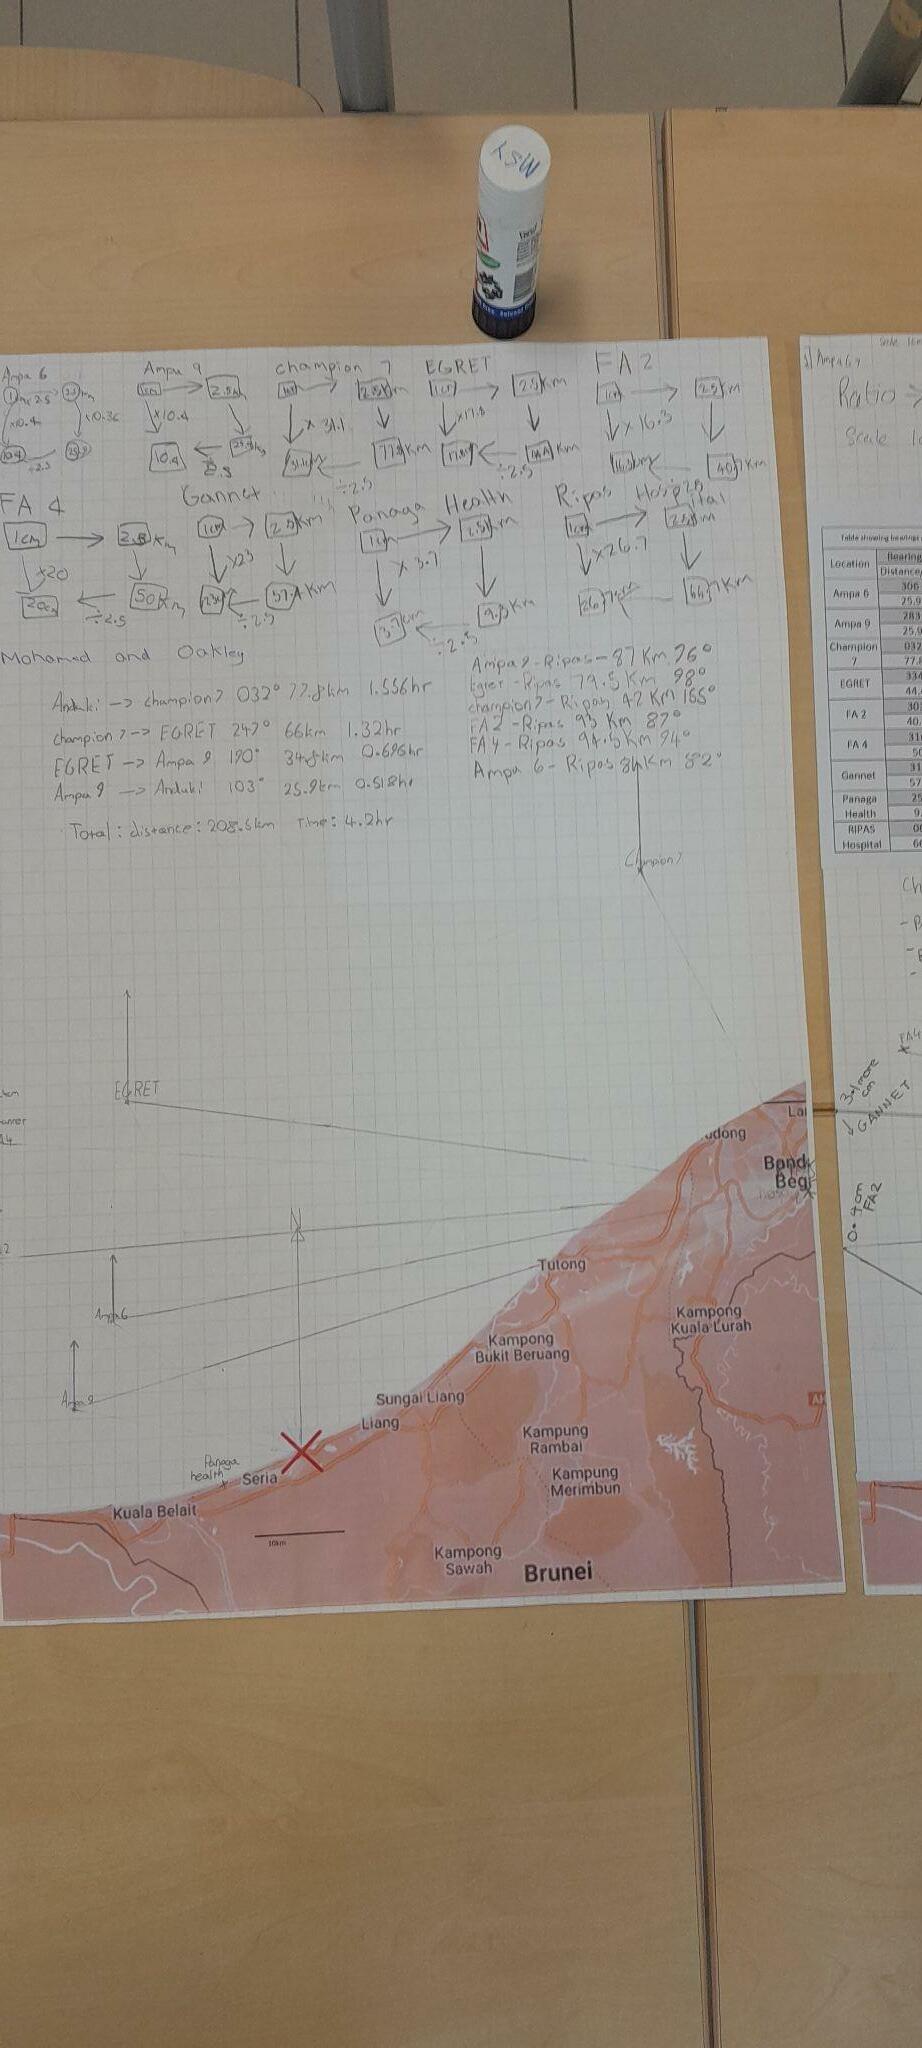 MSY
Ampa 6
Ampa 9
Champion 7
EGRET
FA 2
1cm
2.5km
1cm
2.5km
1cm
2.5km
1cm
2.5km
x10.4
x10.36
x10.4
x 31.1
x17.8
x 16.3
10.4
÷2.5
77.8km
÷2.5
÷2.5
FA 4
Gannet
Panaga Health
Ripas Hospital
1cm
2.5km
1cm
2.5km
1cm
2.5km
1cm
2.5km
x20
x23
x 3.7
x26.7
20cm
50km
÷2.5
57.4km
÷2.5
9.3km
÷2.5
66.7km
Mohamed and Oakley
Anduki -> champion7 032° 77.8km 1.556hr
champion7 -> EGRET 247° 66km 1.32hr
EGRET -> Ampa 9 190° 34.8km 0.696hr
Ampa 9 -> Anduki 103° 25.9km 0.518hr
Total: distance: 208.5km Time: 4.2hr
Ampa 9 - Ripas - 87 Km 76°
Egret - Ripas 79.5 Km 98°
champion7 - Ripas 42 Km 165°
FA2 - Ripas 93 Km 87°
FA4 - Ripas 94.5Km 94°
Ampa 6 - Ripas 84Km 82°
Champion7
EGRET
N
Ampa6
Ampa 9
Panaga
health
Seria
Kuala Belait
Liang
Sungai Liang
Kampong
Bukit Beruang
Tutong
udong
Band
Beg
Kampong
Kuala Lurah
Kampung
Rambai
Kampung
Merimbun
Kampong
Sawah
Brunei
10km
Ampa 6
Ratio
Scale
Table showing bearings
Location
Bearing
Distance
Ampa 6
306
25.9
Ampa 9
283
25.9
Champion
7
032
77.8
EGRET
334
44.4
FA 2
30
40.
FA 4
31
50
Gannet
31
57
Panaga
Health
25
9.
RIPAS
Hospital
06
66
Ch
FA4
3.1 more
cm
GANNET
0.4cm
FA2